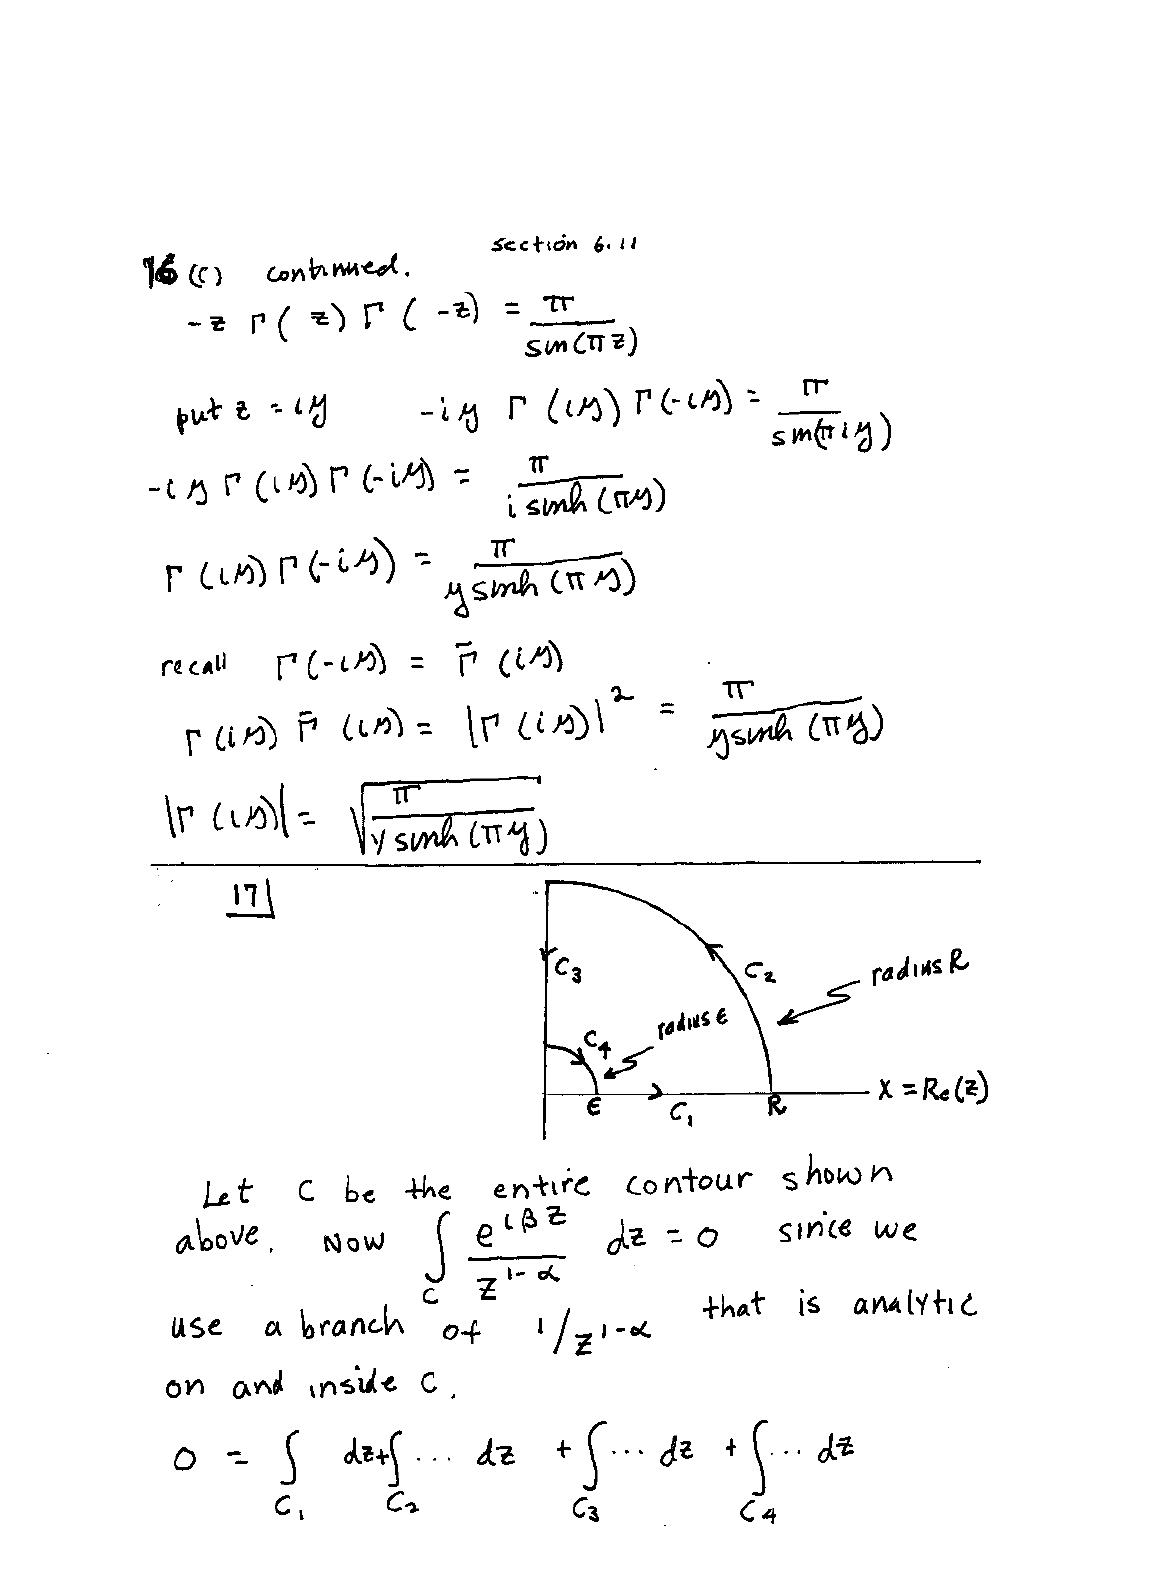 section 6.11
16 (c) continued.
-z Γ(z) Γ(-z) = π / sin(πz)
put z = iy   -iy Γ(iy) Γ(-iy) = π / sin(πiy)
-iy Γ(iy) Γ(-iy) = π / i sinh(πy)
Γ(iy) Γ(-iy) = π / y sinh(πy)
recall Γ(-iy) = Γ̄(iy)
Γ(iy) Γ̄(iy) = |Γ(iy)|² = π / y sinh(πy)
|Γ(iy)| = √(π / y sinh(πy))
17
C₃
C₂
radius R
C₄
radius ε
ε
C₁
R
x = Re(z)
Let C be the entire contour shown
above. Now ∫_C e^{iβz} / z^{1-α} dz = 0 since we
use a branch of 1/z^{1-α} that is analytic
on and inside C.
0 = ∫_{C₁} dz + ∫_{C₂} ... dz + ∫_{C₃} ... dz + ∫_{C₄} ... dz